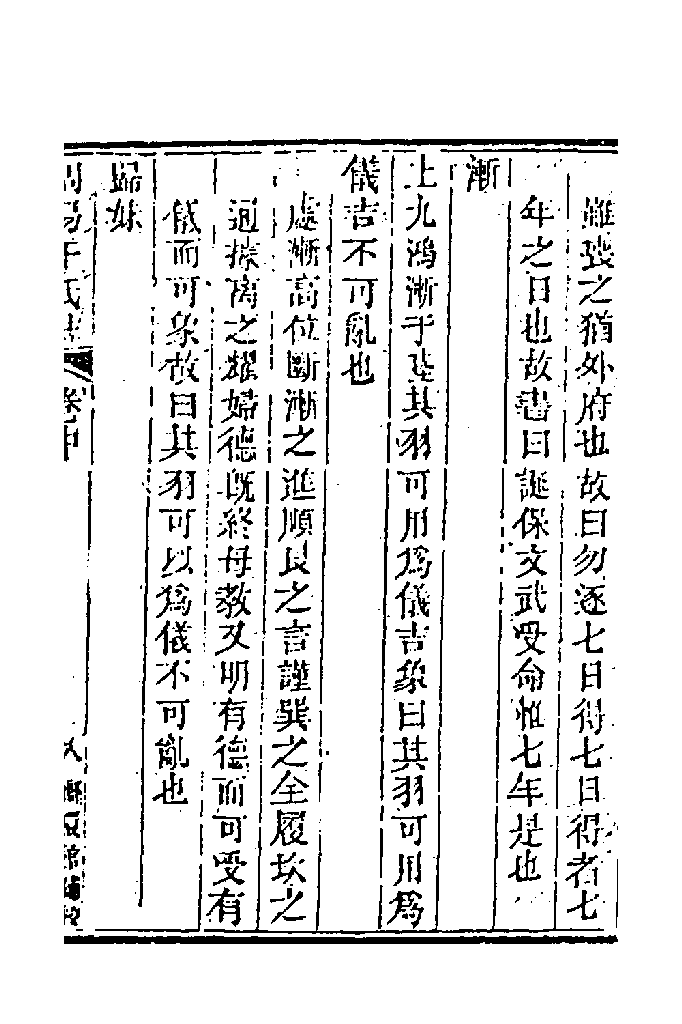 雖喪之猶外府也故曰勿逐七日得七日得者七
年之日也故書曰誕保文武受命惟七年是也
漸
上九鴻漸于陸其羽可用爲儀吉象曰其羽可用爲
儀吉不可亂也
處漸高位斷漸之進順艮之言謹巽之全履坎之
通據离之耀婦德既終母教又明有德而可受有
儀而可象故曰其羽可以爲儀不可亂也
歸妹
周易干氏注 卷中